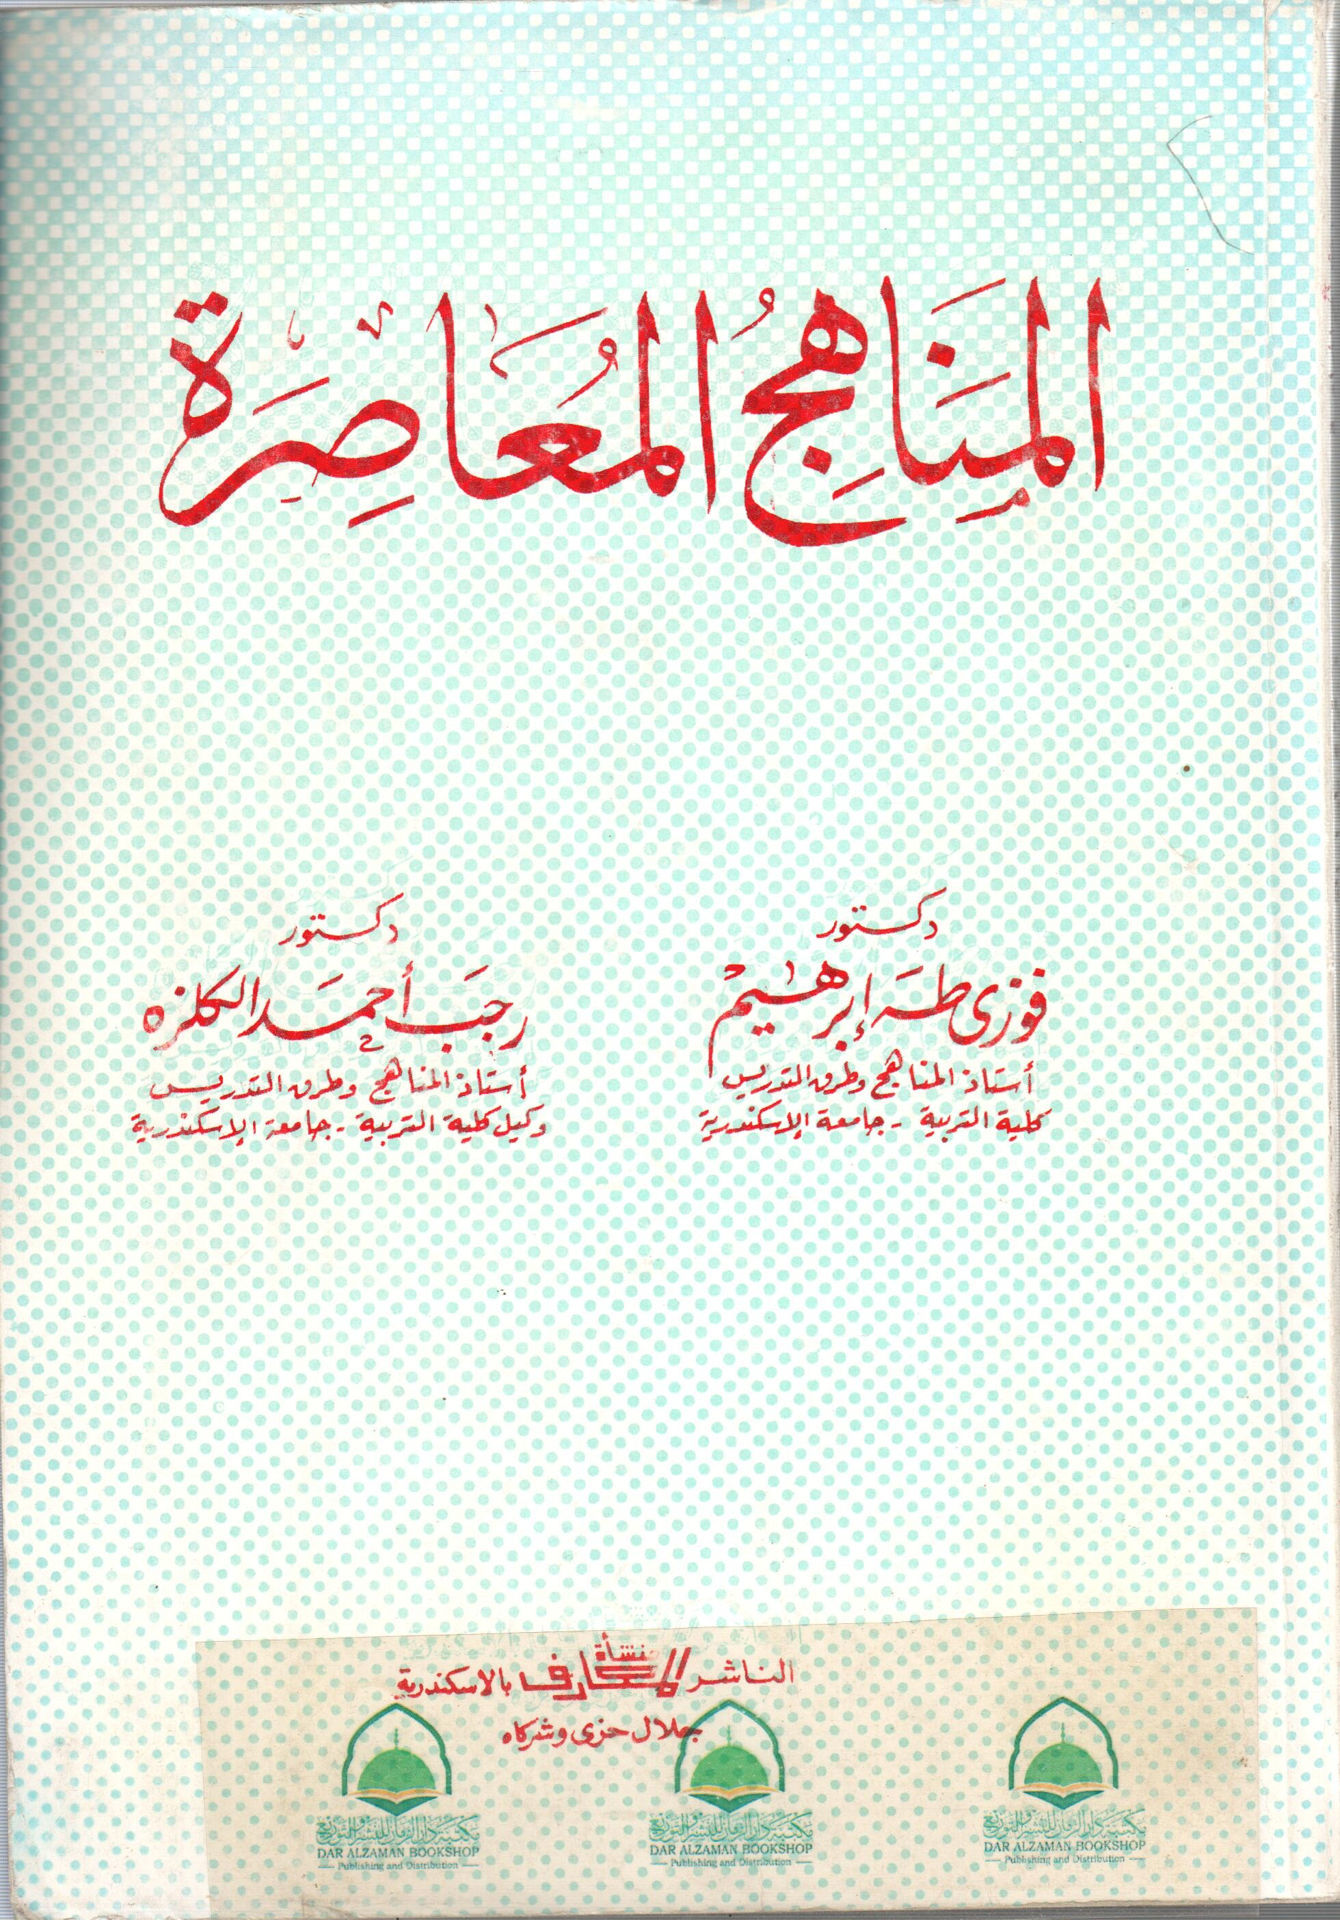 المَنَاهِجُ المُعَاصِرَة
دكتور
فوزى طه إبرهيم
أستاذ المناهج وطرق التدريس
كلية التربية - جامعة الإسكندرية
دكتور
رجب أحمد الكلزه
أستاذ المناهج وطرق التدريس
وكيل كلية التربية - جامعة الاسكندرية
الناشر منشأة المعارف بالاسكندرية
جلال حزى وشركاه
مكتبة دار الزمان للنشر والتوزيع
DAR ALZAMAN BOOKSHOP
Publishing and Distribution
مكتبة دار الزمان للنشر والتوزيع
DAR ALZAMAN BOOKSHOP
Publishing and Distribution
مكتبة دار الزمان للنشر والتوزيع
DAR ALZAMAN BOOKSHOP
Publishing and Distribution